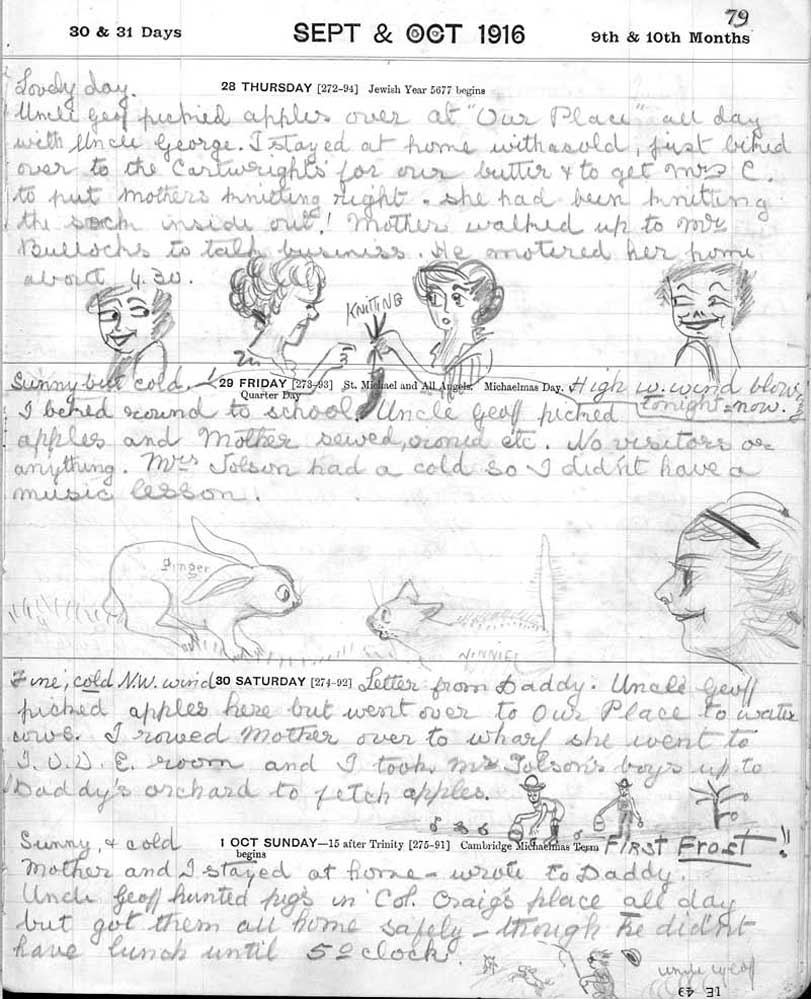 79
30 & 31 Days SEPT & OCT 1916 9th & 10th Months
Lovely day. 28 THURSDAY [272-94] Jewish Year 5677 begins
Uncle Geoff picked apples over at "Our Place" all day
with Uncle George. I stayed at home with a cold, just biked
over to the Cartwrights for our butter & to get Mrs C.
to put Mothers knitting right. She had been knitting
the sock inside out! Mother walked up to Mr
Bullocks to talk business. He motored her home
about 4.30.
KNITING
Sunny but cold. 29 FRIDAY [273-93] St. Michael and All Angels. Michaelmas Day. High w. wind blows
Quarter Day
tonight = now.
I beked round to school. Uncle Geoff picked
apples and Mother sewed, ironed etc. No visitors or
anything. Mrs Tolson had a cold so I did'nt have a
music lesson.
Ginger
WINNIE
Fine, cold N.W. wind 30 SATURDAY [274-92] Letter from Daddy. Uncle Geoff
picked apples here but went over to Our Place to water
cows. I rowed Mother over to wharf she went to
I.O.D.E. room and I took Mr Tolson's boys up to
Daddy's orchard to fetch apples.
Sunny, & cold 1 OCT SUNDAY—15 after Trinity [275-91] Cambridge Michaelmas Term FIRST FROST!!
begins
Mother and I stayed at home - wrote to Daddy.
Uncle Geoff hunted pigs in Col. Craig's place all day
but got them all home safely - though he did'nt
have lunch until 5 o clock.
uncle Geoff